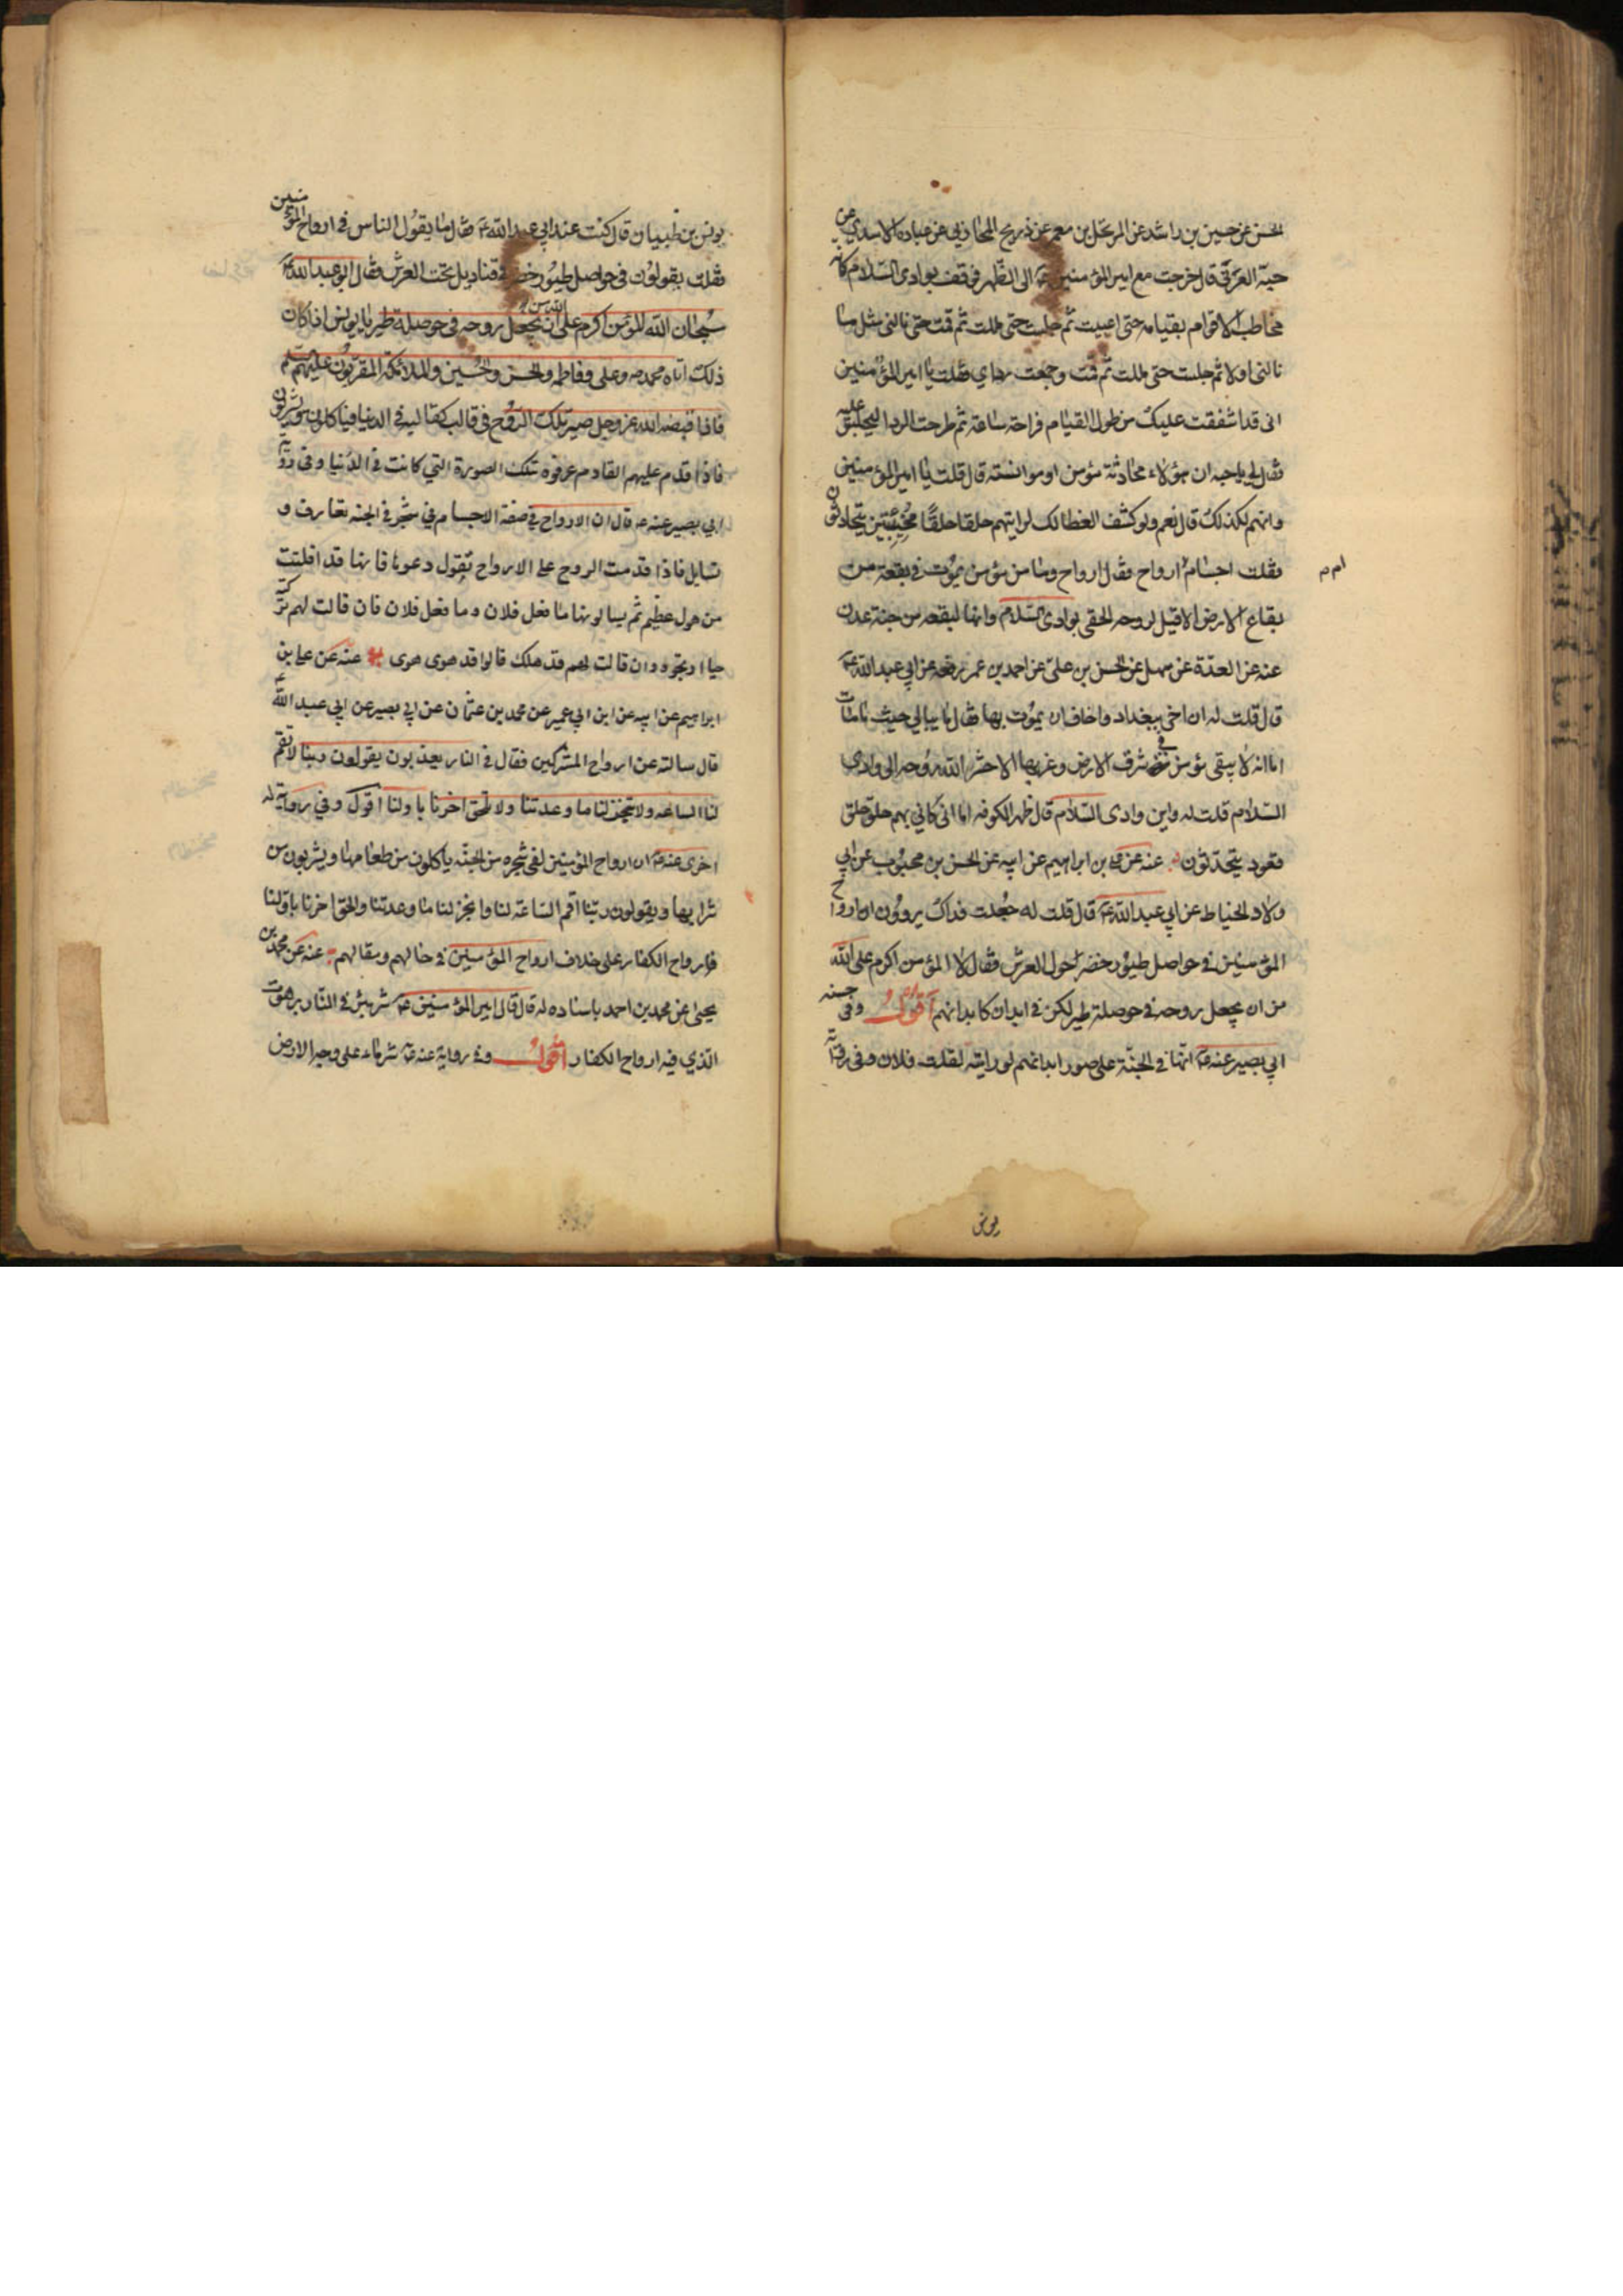 الحسن عن حسين بن راشد عن المرتجل بن معمر عن ذريح المحاربي عن عباد الاسدي عن
حبة العرني قال خرجت مع امير المؤمنين ع الى الظهر فوقف بوادى السلام كانه
مخاطب لاقوام بقيامه حتى اعييت ثم جلست حتى مللت ثم قمت حتى نالنى مثل ما
نالنى اولا ثم جلست حتى مللت ثم قمت وجمعت رداي فقلت يا امير المؤمنين
انى قد اشفقت عليك من طول القيام فراحة ساعة ثم طرحت الرداء ليجلس عليه
فقال لي يا حبه ان هو الا محادثة مؤمن او موانسته قال قلت يا امير المؤمنين
وانهم لكذلك قال نعم ولو كشف الغطا لك لرايتهم حلقا حلقا مخبتين يتحادثون
فقلت اجسام ام ارواح فقال ارواح وما من مؤمن يموت في بقعة من
بقاع الارض الا قيل لروحه الحقى بوادى السلام وانها لبقعه من جنة عدن
عنه عن العدة عن سهل عن الحسن بن علي عن احمد بن عمر رفعه عن ابي عبد الله ع
قال قلت له ان اخى ببغداد واخاف ان يموت بها فقال ما يبالي حيث ما مات
اما انه لا يبقى مؤمن في شرق الارض وغربها الا حشر الله روحه الى وادى
السلام قلت له واين وادى السلام قال ظهر الكوفه اما انى كاني بهم حلق حلق
قعود يتحدثون عنه عن علي بن ابراهيم عن ابيه عن الحسن بن محبوب عن ابي
ولاد الحناط عن ابي عبد الله ع قال قلت له جعلت فداك يروون ان ارواح
المؤمنين في حواصل طيور خضر حول العرش فقال لا المؤمن اكرم على الله
من ان يجعل روحه في حوصلة طير لكن في ابدان كابدانهم اقول وفى
ابي بصير عنه ع انها في الجنة على صور ابدانهم لو رايته لقلت فلان وفى رواية
يونس
يونس بن ظبيان قال كنت عند ابي عبد الله ع فقال ما يقول الناس في ارواح المؤمنين
فقلت يقولون في حواصل طيور خضر في قناديل تحت العرش فقال ابو عبد الله ع
سبحان الله المؤمن اكرم على الله من ان يجعل روحه في حوصلة طير يا يونس اذا كان
ذلك اتاه محمد ص وعلى وفاطمه والحسن والحسين والملائكة المقربون عليهم السلم
فاذا قبضه الله عز وجل صير تلك الروح في قالب كقالبه في الدنيا فياكلون ويشربون
فاذا قدم عليهم القادم عرفوه بتلك الصورة التي كانت في الدنيا وفى رواية
ابي بصير عنه ع قال ان الارواح في صفة الاجسام في شجر في الجنه تعارف و
تسايل فاذا قدمت الروح على الارواح تقول دعوها فانها قد افلتت
من هول عظيم ثم يسالونها ما فعل فلان وما فعل فلان فان قالت لهم تركته
حيا ارتجوه وان قالت لهم قد هلك قالوا قد هوى هوى عنه عن علي بن
ابراهيم عن ابيه عن ابن ابي عمير عن محمد بن عثمان عن ابي بصير عن ابي عبد الله ع
قال سالته عن ارواح المشركين فقال في النار يعذبون يقولون ربنا لا تقم
لنا الساعه ولا تنجز لنا ما وعدتنا ولا تلحق اخرنا باولنا اقول وفي رواية له
اخرى عنه ع ان ارواح المؤمنين لفي شجره من الجنة ياكلون من طعامها ويشربون من
شرابها ويقولون ربنا اقم الساعة لنا وانجز لنا ما وعدتنا والحق اخرنا باولنا
فارواح الكفار على خلاف ارواح المؤمنين في حالهم ومقالهم عنه عن محمد بن
يحيى عن محمد بن احمد باسناده له قال قال امير المؤمنين ع شر بئر في النار برهوت
الذي فيه ارواح الكفار اقول وفي رواية عنه ع شر ماء على وجه الارض